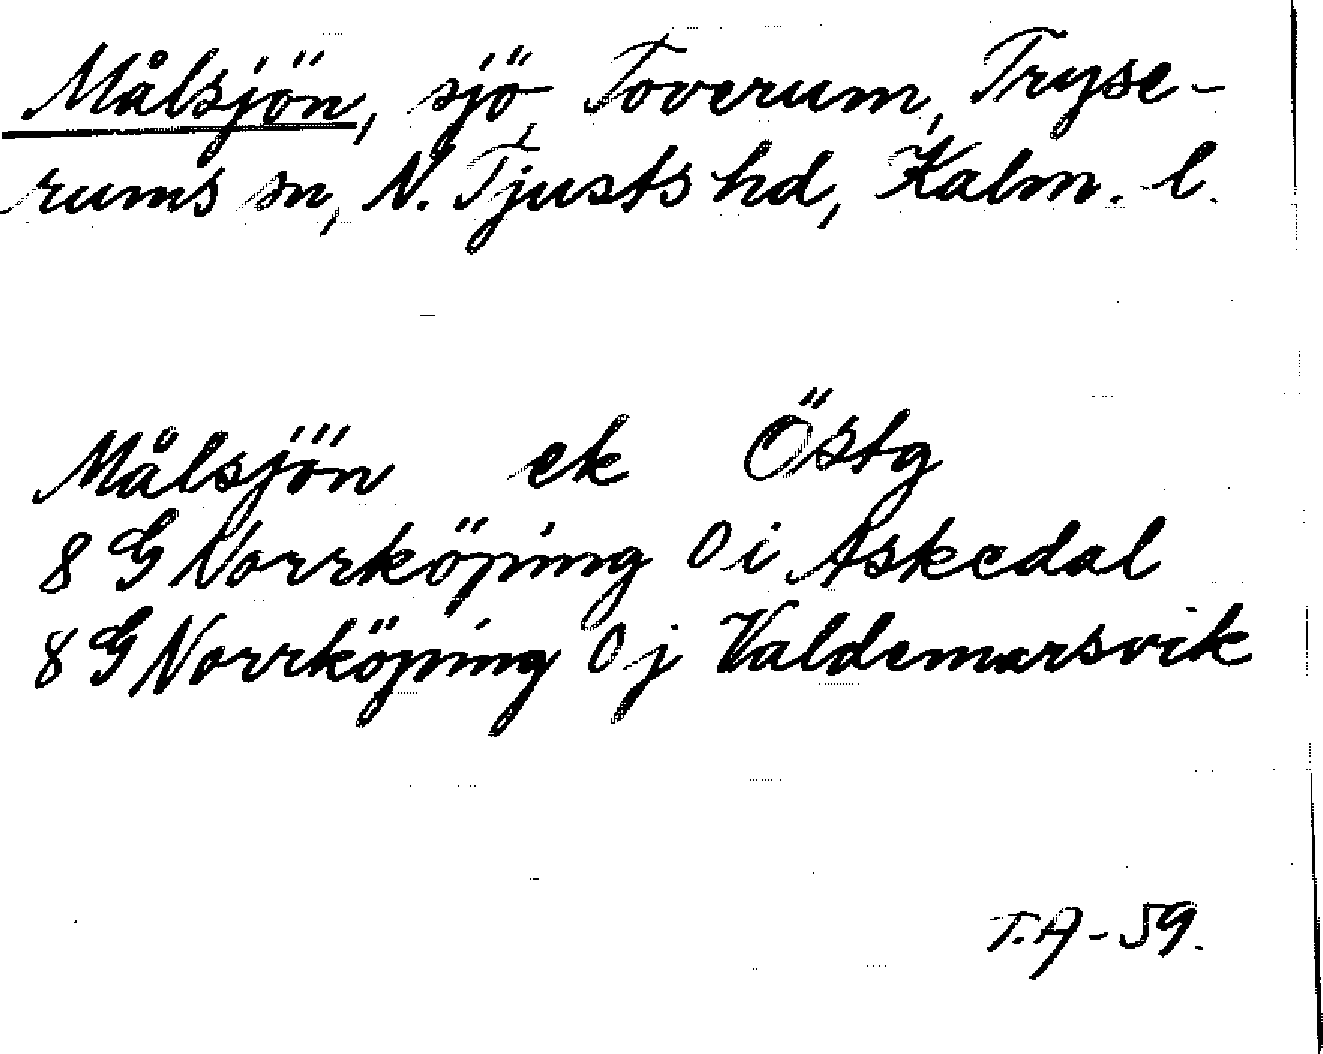 Målsjön, sjö Toverum, Tryse-
rums sn, N. Tjusts hd, Kalm. l.
Målsjön ek Östg
8 G Norrköping 0 i Askedal
8 G Norrköping 0 j Valdemarsvik
T.A-59.